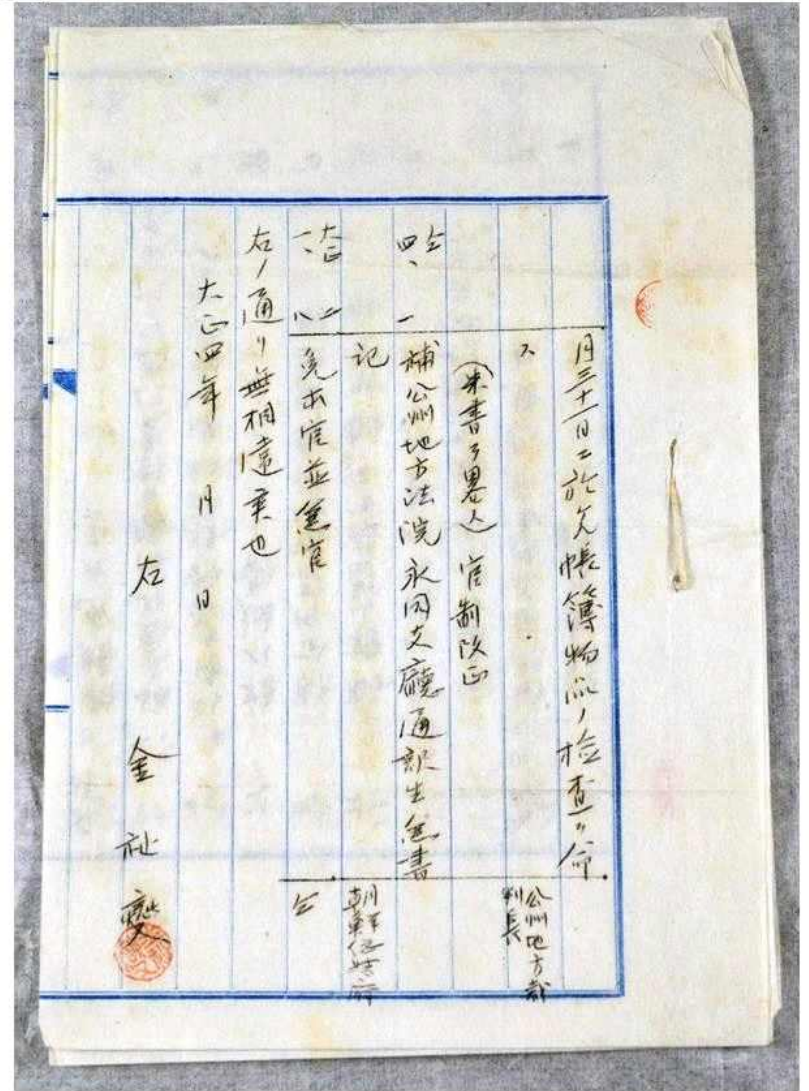 月三十一日ニ於ケル帳簿物品ノ検査ヲ命
ス
公州地方裁
判長
(朱書ヲ畧ス) 官制改正
仝
四、一
補公州地方法院永同支廳通訳生兼書
記
朝鮮総督府
大正
一、八
免本官並兼官
仝
右ノ通リ無相違候也
大正四年 月 日
右 金祉燮